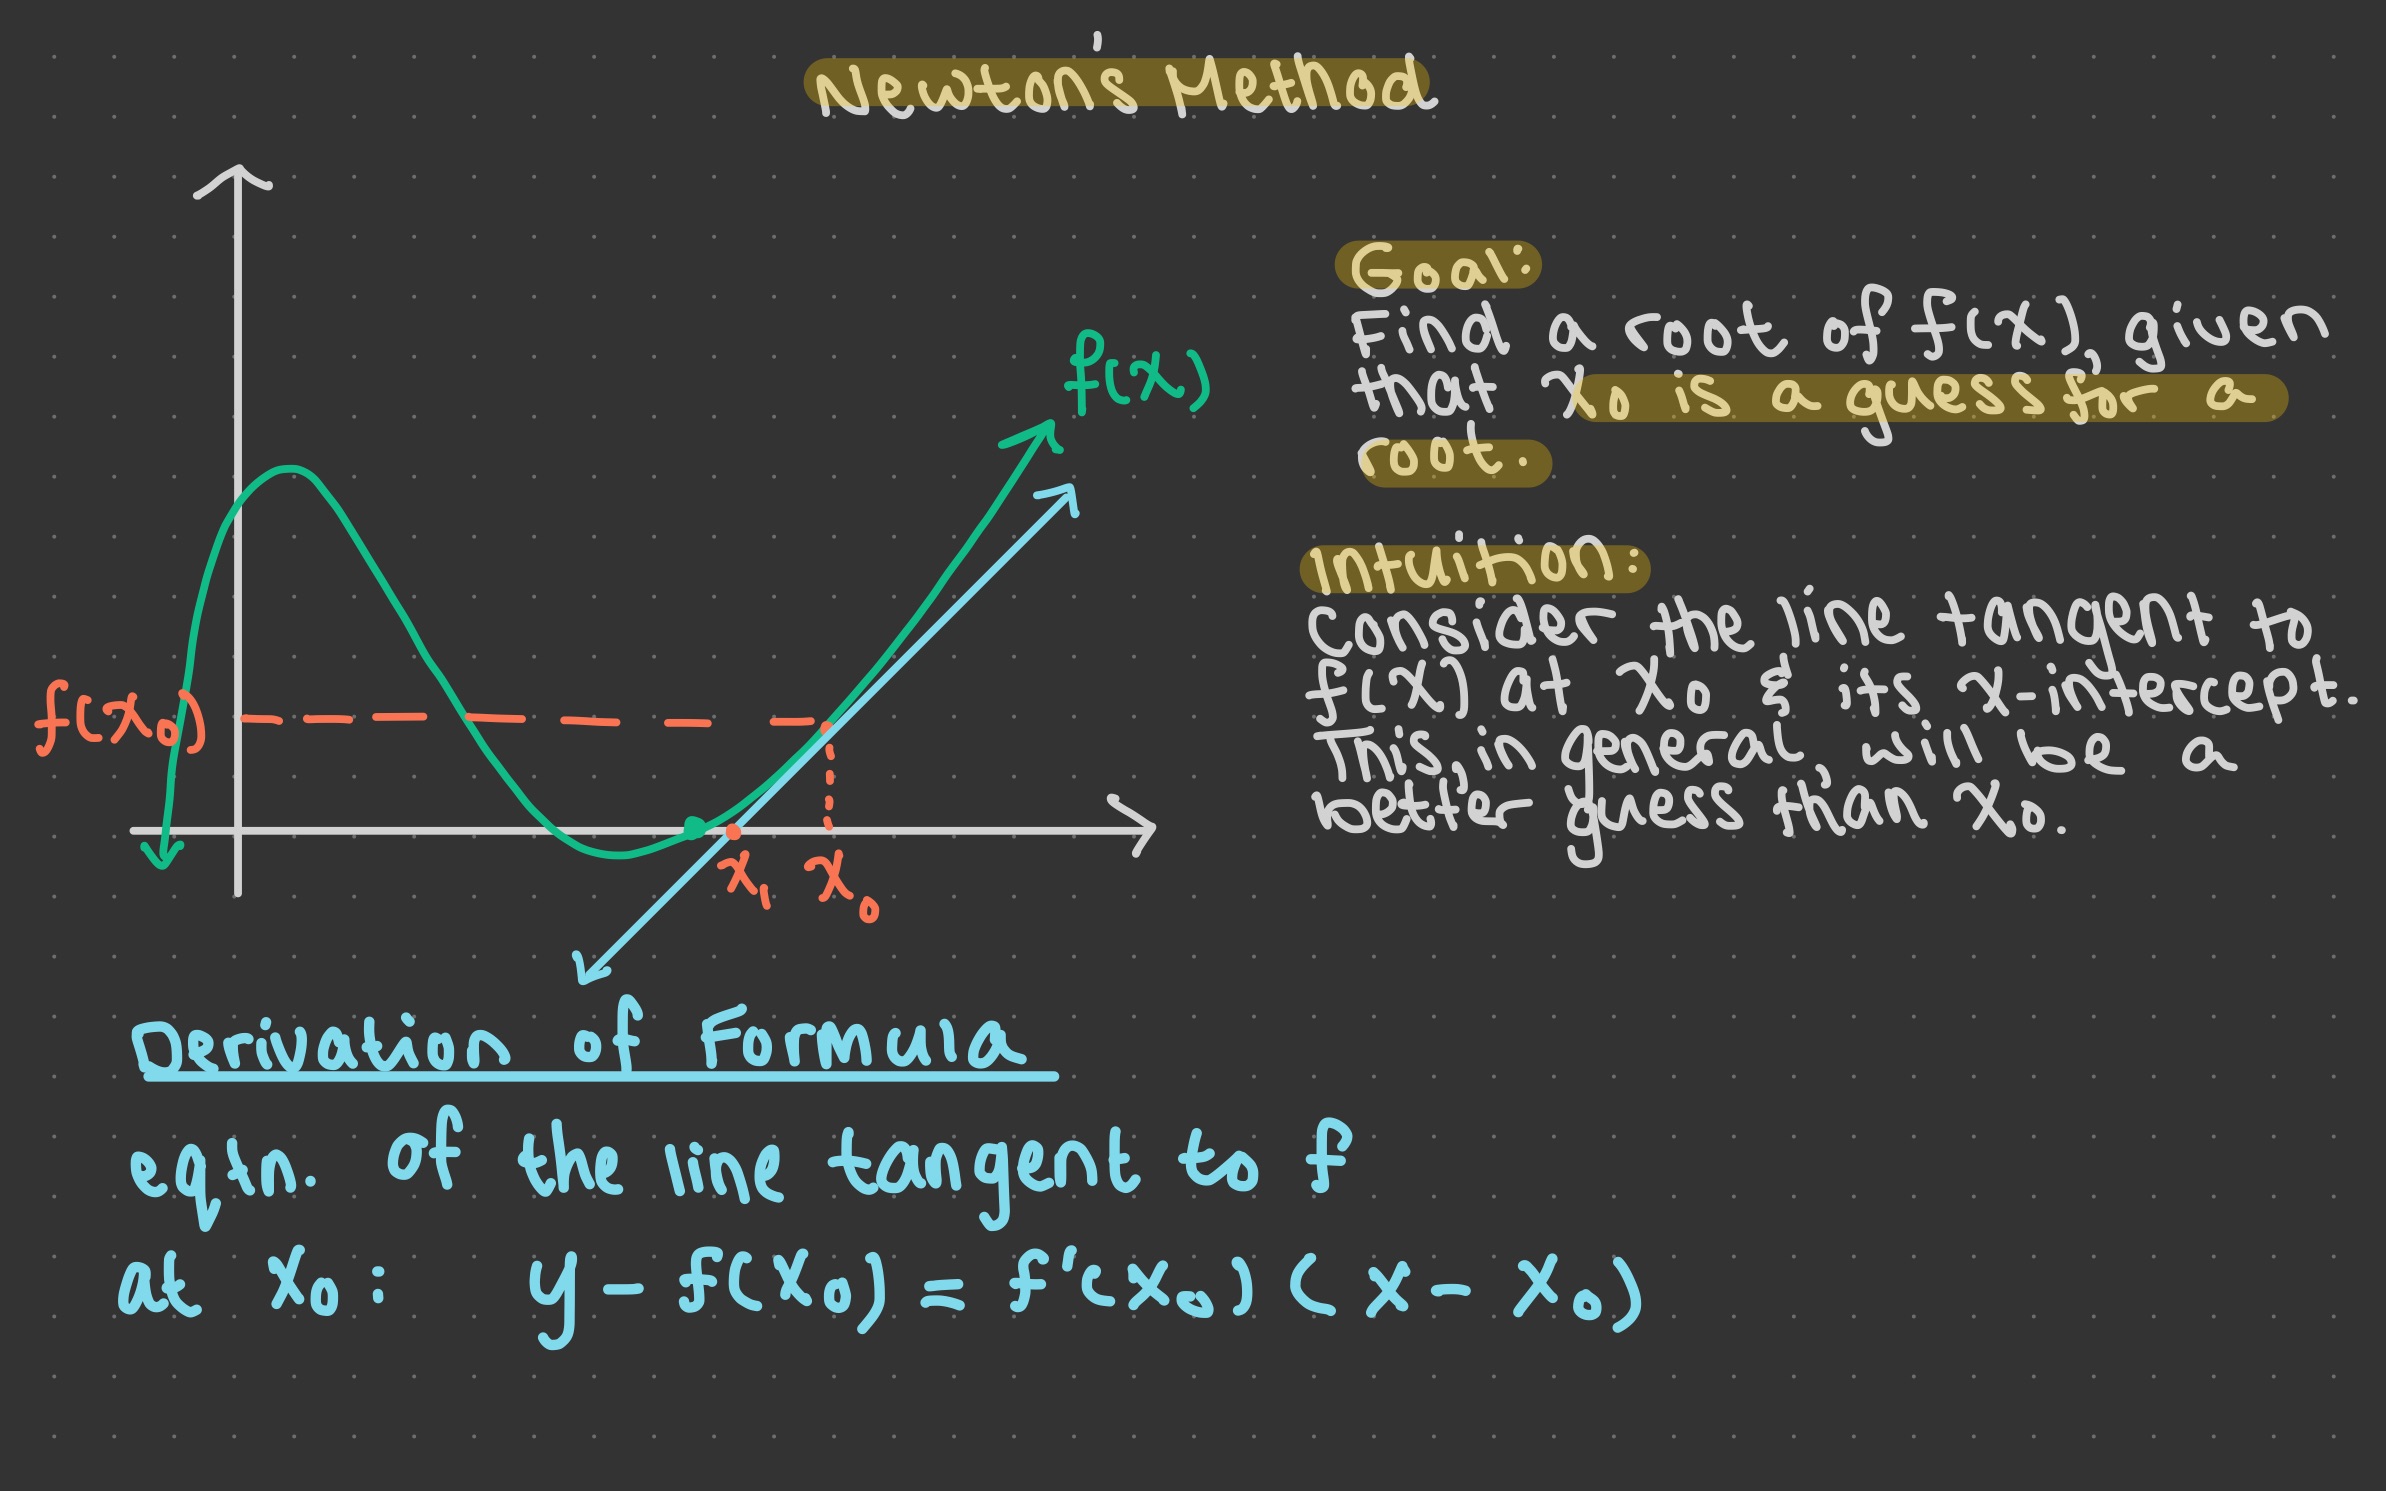 Newton's Method
Goal:
Find a root of f(x), given
that x₀ is a guess for a
root.
Intuition:
Consider the line tangent to
f(x) at x₀ & its x-intercept.
This, in general, will be a
better guess than x₀.
f(x)
f(x₀)
x₁ x₀
Derivation of Formula
eqtn. of the line tangent to f
at x₀: y - f(x₀) = f'(x₀) (x - x₀)